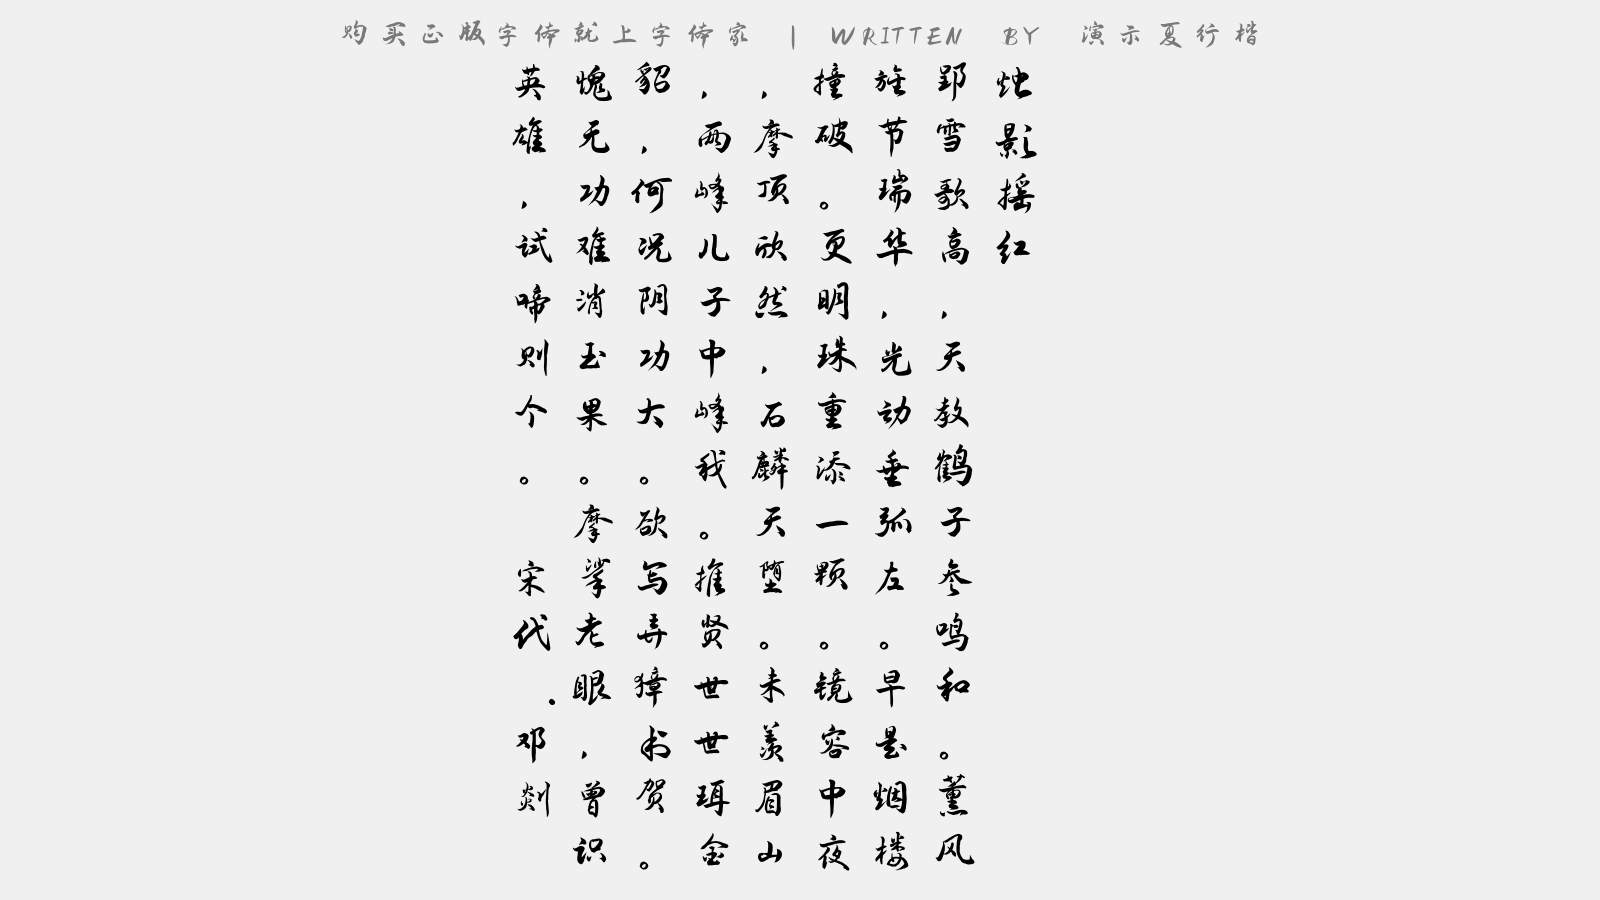 购买正版字体就上字体家 | WRITTEN BY 演示夏行楷
烛影摇红
郢雪歌高，天教鹤子参鸣和。薰风
旌节瑞华，光动垂弧左。早是烟楼
撞破。更明珠重添一颗。镜容中夜
，摩顶欣然，石麟天堕。未羡眉山
，两峰儿子中峰我。推贤世世珥金
貂，何况阴功大。欲写弄獐书贺。
愧无功难消玉果。摩挲老眼，曾识
英雄，试啼则个。 宋代·邓剡